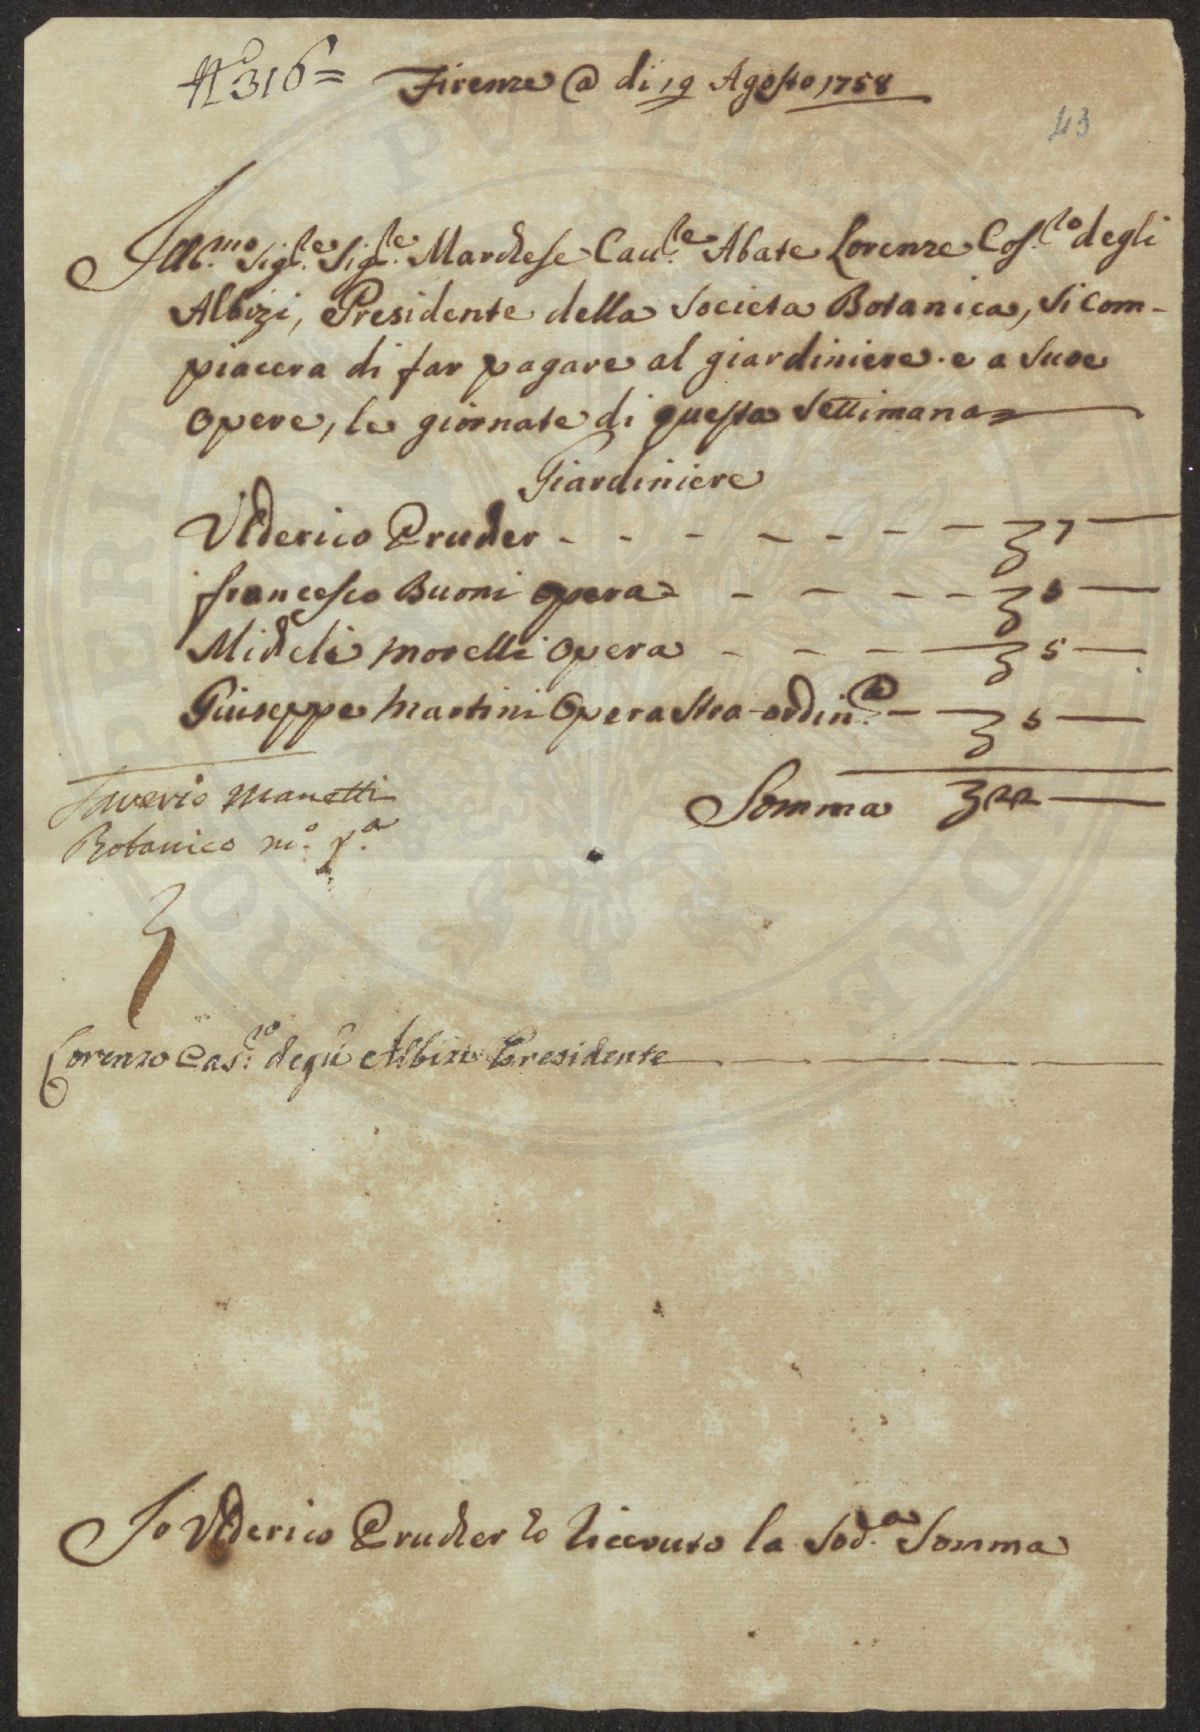 N.° 316=
Firenze @ di 19 Agosto 1758
43
Ill.mo Sig.re Sig.re Marchese Cau.re Abate Lorenzo Cos.to degli
Albizi, Presidente della Societa Botanica, si com-
piacera di far pagare al giardiniere e a sue
Opere, le giornate di questa settimana=
Giardiniere
Vlderico Prucher - - - - - - - ʒ 7 —
francesco Buoni opera - - - - ʒ 5 —
Micheli Morelli opera - - - - ʒ 5 —
Giuseppe Martini Opera stra-ordin.a - - ʒ 5 —
Somma ʒ 22 —
Saverio Manetti
Botanico m.o p.a
Lorenzo Cas.to degli Albizi Presidente
Io Vlderico Prucher ho riceuuto la sod.a Somma